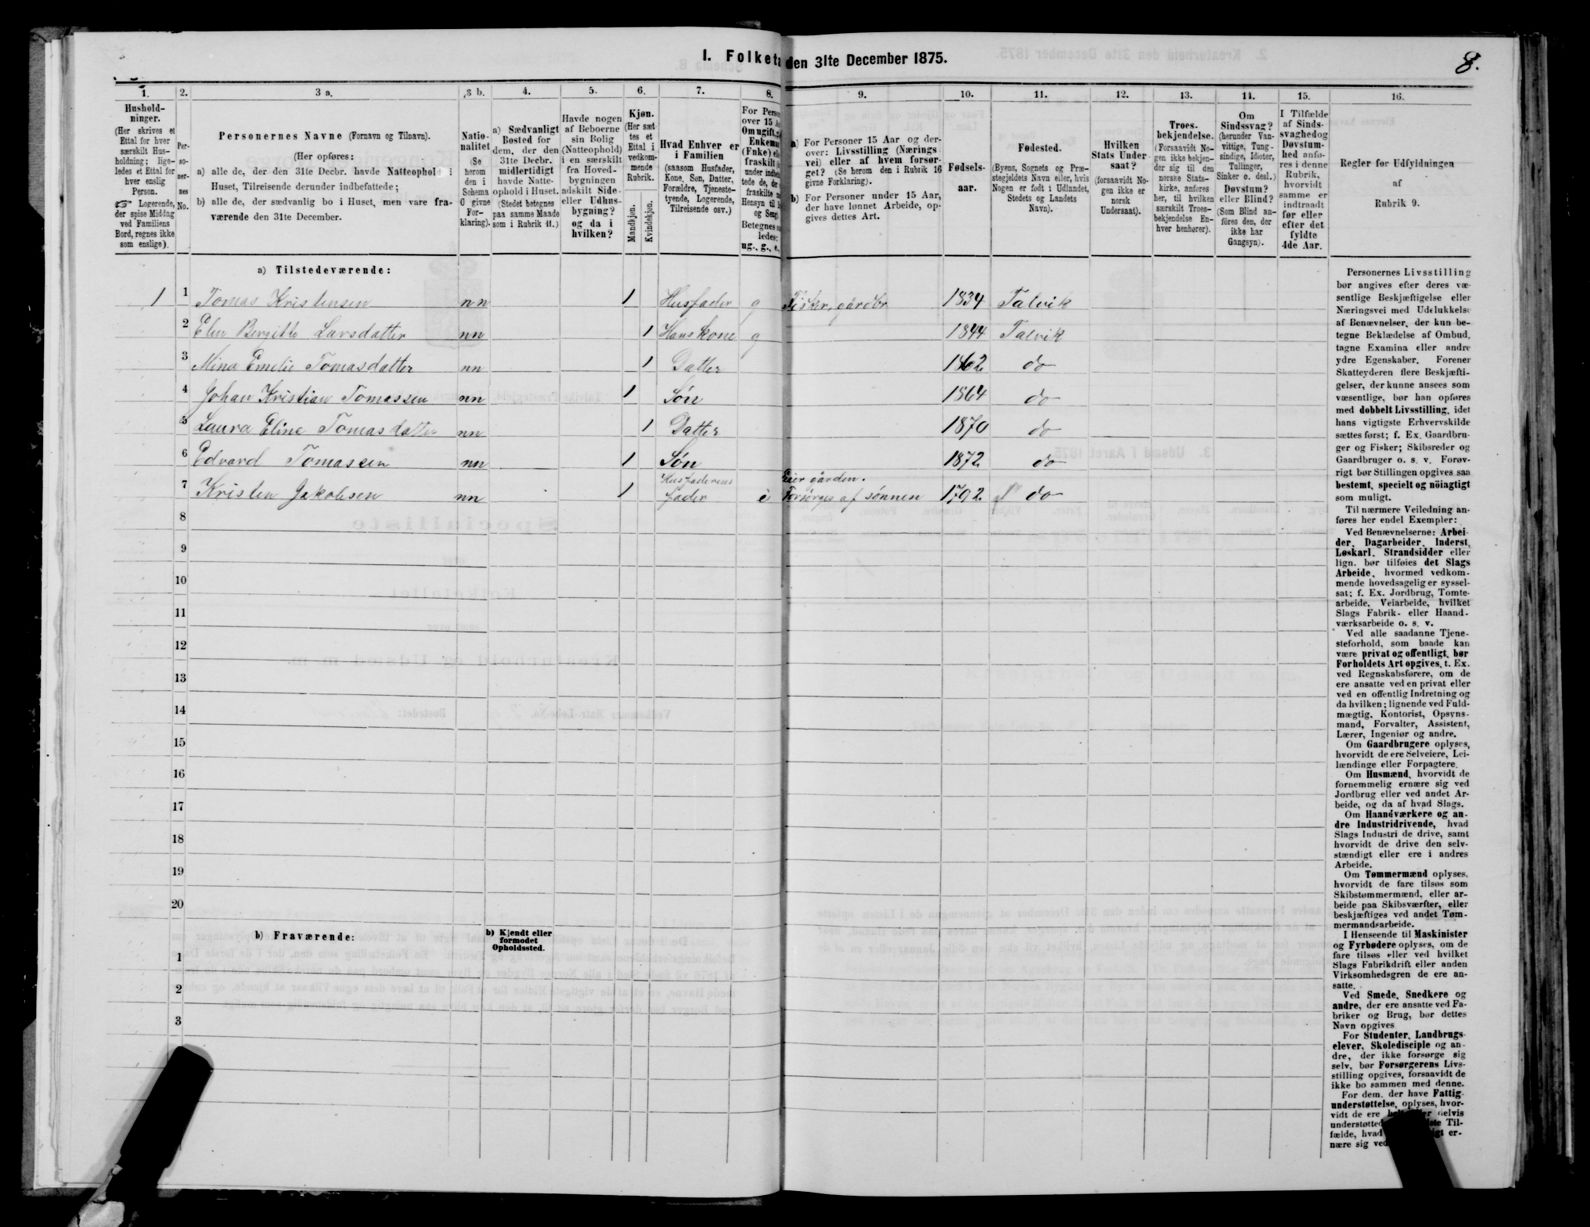 I. Folketæ den 31te December 1875.
8.
1.
Hushold-
ninger.
(Her skrives et
Ettal for hver
særskilt Hus-
holdning; lige-
ledes et Ettal for
hver enslig
Person.
☞ Logerende,
der spise Middag
ved Familiens
Bord, regnes ikke
som enslige).
2.
Per-
so-
ner-
nes
No.
3 a.
Personernes Navne (Fornavn og Tilnavn).
(Her opføres:
a) alle de, der den 31te Decbr. havde Natteophold i
Huset, Tilreisende derunder indbefattede;
b) alle de, der sædvanlig bo i Huset, men vare fra-
værende den 31te December.
3 b.
Natio-
nalitet
(Se
herom
den i
Schema
0 givne
For-
klaring).
4.
a) Sædvanligt
Bosted for
dem, der den
31te Decbr.
midlertidigt
havde Natte-
ophold i Huset.
(Stedet betegnes
paa samme Maade
som i Rubrik 11.)
5.
Havde nogen
af Beboerne
sin Bolig
(Natteophold)
i en særskilt
fra Hoved-
bygningen
adskilt Side-
eller Udhus-
bygning?
og da i
hvilken?
6.
Kjøn.
(Her sæt
tes et
Ettal i
vedkom-
mende
Rubrik.
Mandkjøn.
Kvindekjøn.
7.
Hvad Enhver er
i Familien
(saasom Husfader,
Kone, Søn, Datter,
Forældre, Tjeneste-
tyende, Logerende,
Tilreisende osv.)
8.
For Person
over 15 A
Om ugift, g
Enkema
(Fnke) el
fraskilt
under indbe
tede de, de
fraskilte
Hensyn til
og Seng.
Betegnes s
ledes:
ug., g., e.,
9.
a) For Personer 15 Aar, og der-
over: Livsstilling (Nærings-
vei) eller af hvem forsør-
get? (Se herom den i Rubrik 16
givne Forklaring).
b) For Personer under 15 Aar,
der have lønnet Arbeide, op-
gives dettes Art.
10.
Fødsels-
aar.
11.
Fødested.
(Byens, Sognets og Præ-
stegjeldets Navn eller, hvis
Nogen er født i Udlandet,
Stedets og Landets
Navn).
12.
Hvilken
Stats Under
saat?
(forsaavidt No-
gen ikke er
norsk
Undersaat).
13.
Troes-
bekjendelse.
(Forsaavidt No-
gen ikke bekjen-
der sig til den
norske Stats-
kirke, anføres
her, til hvilken
særskilt Troes-
bekjendelse En-
hver henhører).
14.
Om
Sindssvag?
(herunder Van-
vittige, Tung-
sindige, Idioter,
Tullinger,
Sinker o. desl.)
Døvstum?
eller Blind?
(Som Blind an-
føres den, der
ikke har
Gangsyn).
15.
I Tilfælde
af Sinds-
svaghed og
Døvstum-
hed anfø-
res i denne
Rubrik,
hvorvidt
samme er
indtraadt
før eller
efter det
fyldte
4de Aar.
16.
Regler for Udfyldningen
af
Rubrik 9.
a) Tilstedeværende:
1 1 Tomas Kristensen nn 1 Husfader g Fisker, gårdbr 1834 Talvik
2 Elen Bergitte Larsdatter nn 1 Hans kone g 1844 Talvik
3 Mina Emilie Tomasdatter nn 1 Datter 1862 do
4 Johan Kristian Tomassen nn 1 Søn 1864 do
5 Laura Eline Tomasdatter nn 1 Datter 1870 do
6 Edvard Tomassen nn 1 Søn 1872 do
7 Kristen Jakobsen nn 1 Husfaderens fader e Eier gården. Forsørges af sønnen 1792 do
8
9
10
11
12
13
14
15
16
17
18
19
20
b) Fraværende:
b) Kjendt eller
formodet
Opholdssted.
1
2
3
Personernes Livsstilling
bør angives efter deres væ-
sentlige Beskjæftigelse eller
Næringsvei med Udelukkelse
af Benævnelser, der kun be-
tegne Beklædelse af Ombud,
tagne Examina eller andre
ydre Egenskaber. Forener
Skatteyderen flere Beskjæfti-
gelser, der kunne ansees som
væsentlige, bør han opføres
med dobbelt Livsstilling, idet
hans vigtigste Erhvervskilde
sættes først; f. Ex. Gaardbru-
ger og Fisker; Skibsreder og
Gaardbruger o. s. v. Forøv-
rigt bør Stillingen opgives saa
bestemt, specielt og nöiagtigt
som muligt.
Til nærmere Veiledning an-
føres her endel Exempler:
Ved Benævnelserne: Arbei-
der, Dagarbeider, Inderst,
Løskarl, Strandsidder eller
lign. bør tilføies det Slags
Arbeide, hvormed vedkom-
mende hovedsagelig er syssel-
sat; f. Ex. Jordbrug, Tomte-
arbeide, Veiarbeide, hvilket
Slags Fabrik- eller Haand-
værksarbeide o. s. v.
Ved alle saadanne Tjene-
steforhold, som baade kan
være privat og offentligt, bør
Forholdets Art opgives, t. Ex.
ved Regnskabsførere, om de
ere ansatte ved en privat eller
ved en offentlig Indretning og
da hvilken; lignende ved Fuld-
mægtig, Kontorist, Opsyns-
mand, Forvalter, Assistent,
Lærer, Ingeniør og andre.
Om Gaardbrugere oplyses,
hvorvidt de ere Selveiere, Lei-
lændinge eller Forpagtere.
Om Husmænd, hvorvidt de
fornemmelig ernære sig ved
Jordbrug eller ved andet Ar-
beide, og da af hvad Slags.
Om Haandværkere og an-
dre Industridrivende, hvad
Slags Industri de drive, samt
hvorvidt de drive den selv-
stændigt eller ere i andres
Arbeide.
Om Tømmermænd oplyses,
hvorvidt de fare tilsøs som
Skibstømmermænd, eller ar-
beide paa Skibsværfter, eller
beskjæftiges ved andet Tøm-
mermandsarbeide.
I Henseende til Maskinister
og Fyrbødere oplyses, om de
fare tilsøs eller ved hvilket
Slags Fabrikdrift eller anden
Virksomhedsgren de ere an-
satte.
Ved Smede, Snedkere og
andre, der ere ansatte ved Fa-
briker og Brug, bør dettes
Navn opgives
For Studenter, Landbrugs-
elever, Skoledisciple og an-
dre, der ikke forsørge sig
selv, bør Forsørgerens Livs-
stilling opgives, forsaavidt de
ikke bo sammen med denne.
For dem, der have Fattig-
understøttelse, oplyses, hvor-
vidt de ere delvis
understøtted Til-
fælde, hvad er-
nære sig ved